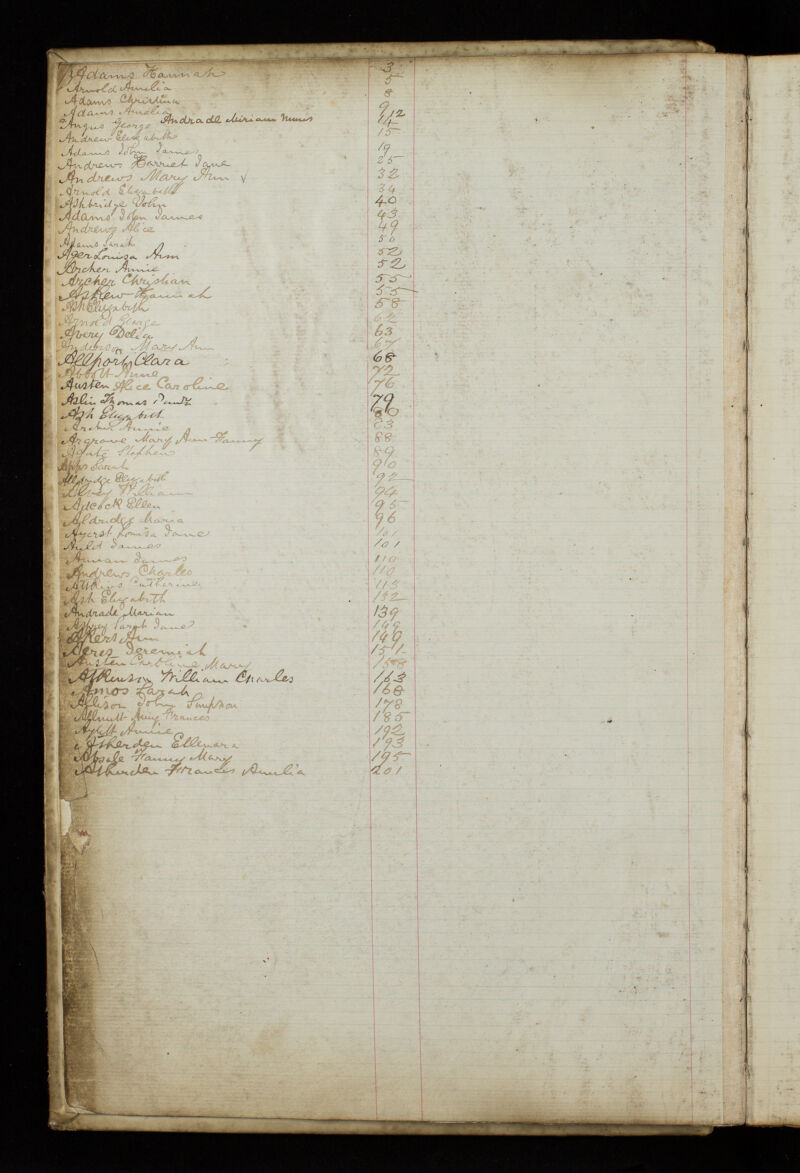 Adams Hannah 3
Arnold Amelia 5
Adams Christina 8
Adams Amelia 9
Angus George Andrade Miriam Nunes 14 112
Andrew Elizabeth 15
Adams John James 19
Andrews Harriet Jane 25
Andrews Mary Ann 32
Arnold Elizabeth 34
Ashbridge John 40
Adams John James 43
Andrews Alice 49
Adams Sarah 50
Ager Louisa Ann 52
Archer Annie 52
Archer Christian 55
Askew Hannah 55
Ash Elizabeth 58
Arnold George 62
Avery Delia 63
Anderson Mary Ann 67
Allport Clara 68
Abbott Anne 72
Austen Alice Caroline 76
Aslin Thomas 79
Ash Elizabeth 80
Archer Annie 83
Argrave Mary Ann Fanny 88
Agate Stephen 89
Apps Sarah 90
Aldridge Elizabeth 92
William 94
Adcock Ellen 95
Aldridge Maria 96
Ayerst Louisa Jane 101
Auld James 101
James 110
Andrews Charles 110
Atkins Catherine 115
Ash Elizabeth 132
Andrade Marian 139
Sarah Jane 149
Akers Ann 149
Acres Jeremiah 151
Austen Caroline Mary 158
Atkinson William Charles 163
Amos Sarah 168
Allison John Simpson 178
Amy Frances 185
Aylett Annie 192
Atherden Ellenora 193
Fanny Mary 195
Atherden Frances Amelia 201